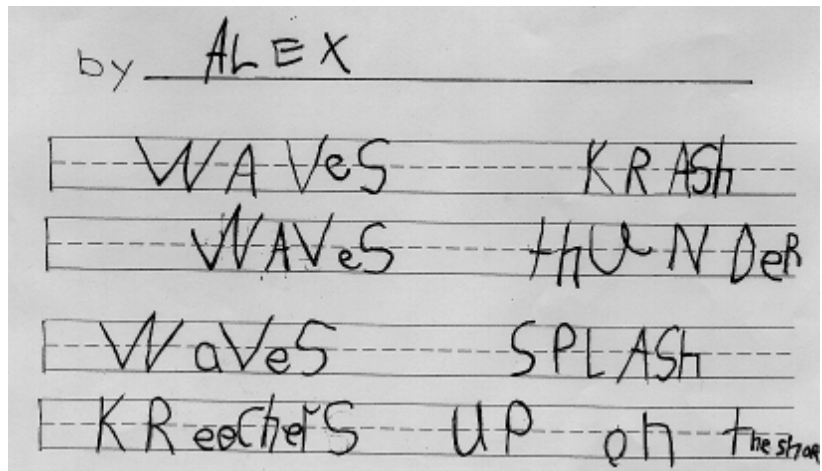 by ALEX
WAVeS KRASh
WAVeS thUNDeR
WaVeS SPLASh
KReeChers UP on the shor